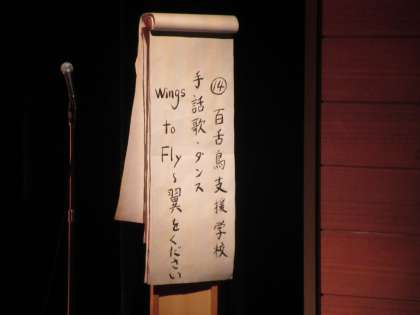 ⑭ 百舌鳥支援学校
手話歌・ダンス
Wings to Fly〜翼をください